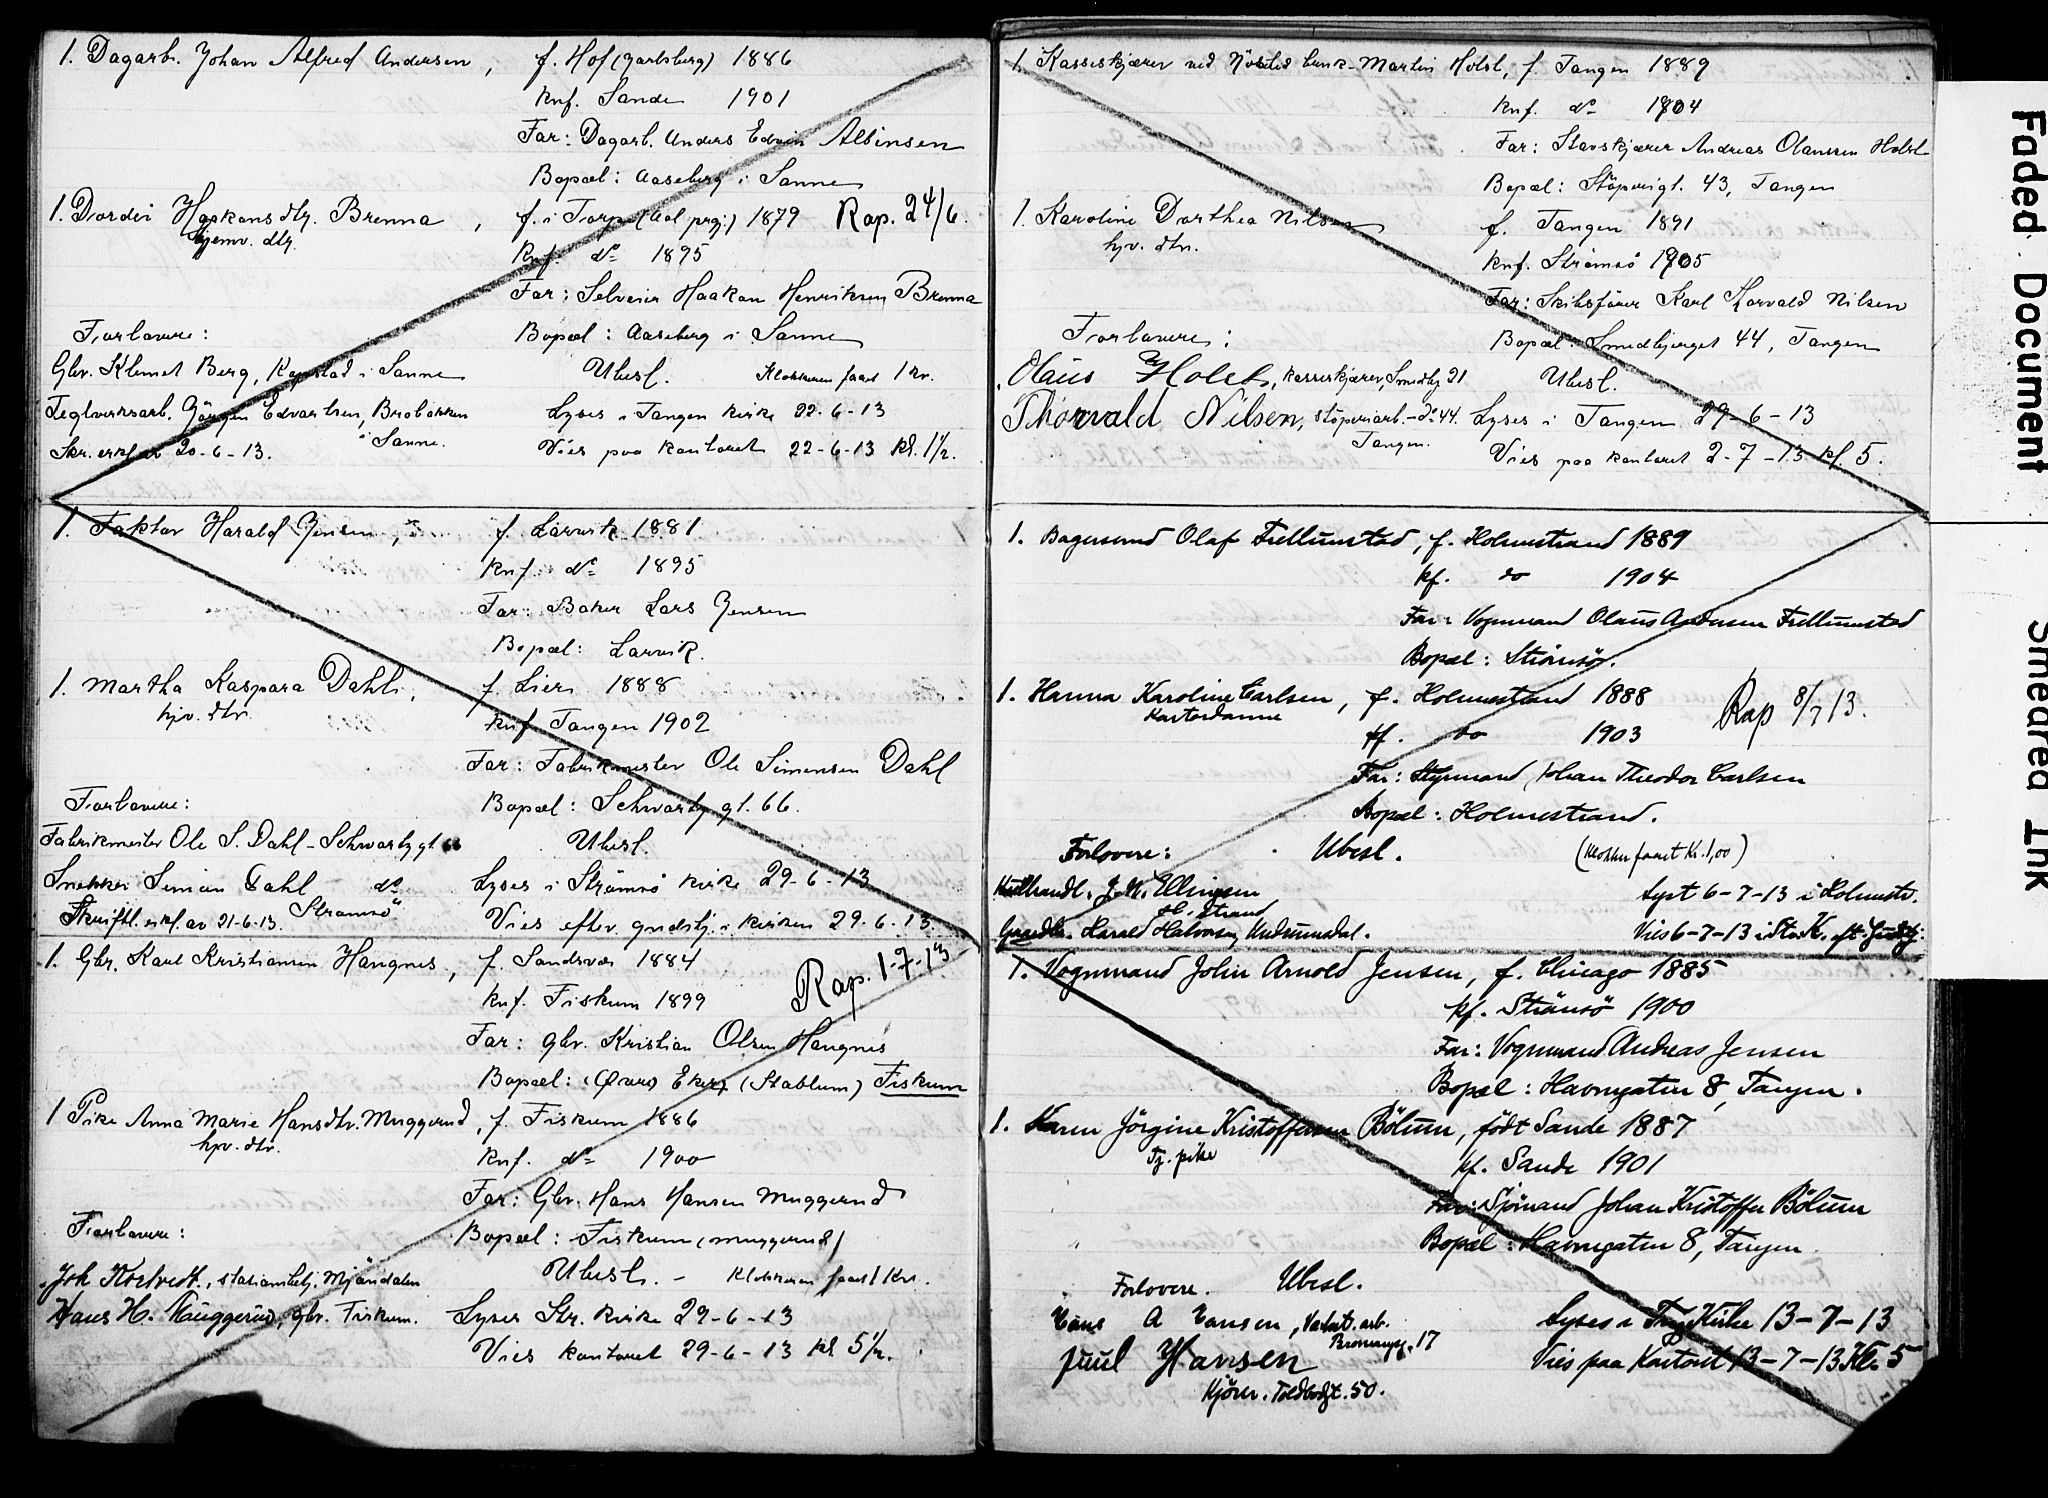 1. Dagarb. Johan Alfred Andersen, f. Hof (Jarlsberg) 1886
Knf. Sande 1901
Far: Dagarb. Anders Edvin Albinsen
Bopæl: Aaseberg i Sanne
1. Dordei Haakonsdtr. Brenna, f. i Torpe (Aal prgj.) 1879 Rap. 24/6.
hjemv. dtr.
Knf. do 1895
Far: Selveier Haakon Henriksen Brenna
Forlovere: Bopæl: Aaseberg i Sanne
Gbr. Klemet Berg, i Sanne Ubesl. Klokkeren faaet 1 kr.
Teglverksarb. Jörgen Edvartsen, Brobakken Lyses i Tangen kirke 22-6-13
i Sanne.
Skr. erkl. av 20-6-13. Vies paa kontoret 22-6-13 kl. 1 1/2.
1. Faktor Harald Jensen, f. Larvik 1881
Knf. do 1895
Far: Baker Lars Jensen
Bopæl: Larvik.
1. Martha Kaspara Dahl, f. Lier 1888
hjv. dtr.
Knf. Tangen 1902
Far: Fabrikmester Ole Simensen Dahl
Forlovere: Bopæl: Schwartzgt. 66.
Fabrikmester Ole S. Dahl - Schwartzgt 66 Ubesl.
Snekker Simen Dahl do Lyses i Strømsö kirke 29-6-13
Strømsö
Skriftl. erkl. av 21-6-13. Vies efter gudstj. i kirken 29.6.13.
1. Gbr. Karl Kristiansen Hangnes, f. Sandsvær 1884
Rap. 1-7-13
Knf. Fiskum 1899
Far: gbr. Kristian Olsen Hangnes
Bopæl: (Øvre) Eker (Stablum) Fiskum
1 Pike Anna Marie Hansdtr. Muggerud, f. Fiskum 1886
hjv. dtr.
Knf. do 1900
Far: Gbr. Hans Hansen Muggerud
Forlovere: Bopæl: Fiskum (Muggerud)
Joh , stasionsbetj. Mjöndalen Ubesl. - Klokkeren faaet 1 Kr.
Hans H. Muggerud, gbr. Fiskum. Lyses Str. kirke 29-6-13
Vies kontoret 29-6-13 kl. 5 1/2.
1. Kasseskjærer ved bruk - Martin Holst, f. Tangen 1889
Knf. do 1904
Far: Stavskjærer Andreas Olaussen Holst
Bopæl: Stöperigt. 43, Tangen
1. Karoline Dorthea Nilsen f. Tangen 1891
hjv. dtr.
Knf. Strømsö 1905
Far: Skibsfører Karl Thorvald Nilsen
Forlovere: Bopæl: Smedbjerget 44, Tangen
Olaus Holst, kasseskjærer, Smedbj 21 Ubesl.
Thorvald Nilsen, stöperiarb. - do 44. Lyses i Tangen 29-6-13
Tangen.
Vies paa kontoret 2-7-13 kl. 5.
1. Bagersvend Olaf Frellumstad, f. Holmestrand 1889
kf. do 1904
Far: Vognmand Olaus Andersen Frellumstad
Bopæl: Strömsö.
1. Hanna Karoline Carlsen, f. Holmestrand 1888
Kontordame
Rap 8/7 13.
kf. do 1903
Far: Styrmand Johan Theodor Carlsen
Bopæl: Holmestrand.
Forlovere: Ubesl. (Klokker faaet Kr. 1,00)
J. N. Ellingsen Lyst 6-7-13 i Holmestr.
H.strand
Gaardbr. Harald Halvorsen, Vies 6-7-13 i Str. K. eft. Gudstj.
1. Vognmand John Arnold Jensen, f. Chicago 1885
kf. Strömsö 1900
Far: Vognmand Andreas Jensen
Bopæl: Havnegaten 8, Tangen.
1. Karen Jörgine Kristoffersen Bölum, födt Sande 1887
Tj. pike
kf. Sande 1901
Far: Sjömand Johan Kristoffer Bölum
Bopæl: Havnegaten 8, Tangen.
Forlovere. Ubesl.
Hans A Hansen, arb. Lyses i Tng. Kirke 13-7-13
17
Juul Hansen Vies paa Kontoret 13-7-13 Kl. 5
Kjörer. Toldbodgt. 50.
Faded Document
Smeared Ink